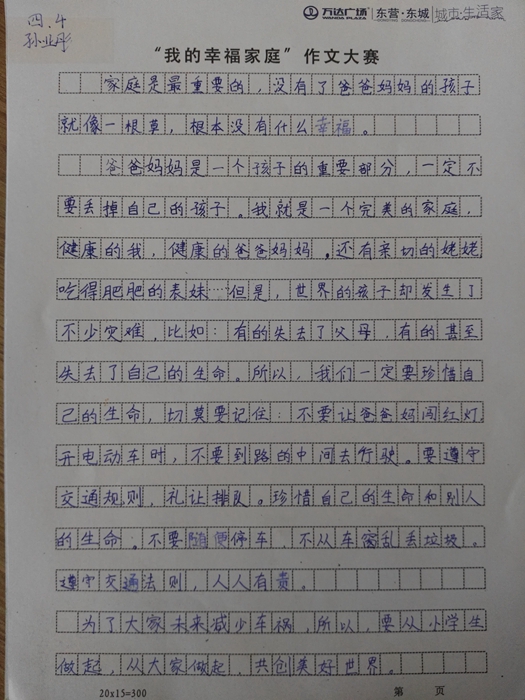 四.4
孙业彤
万达广场 WANDA PLAZA 东营·东城 城市·生活家
“我的幸福家庭”作文大赛
家庭是最重要的，没有了爸爸妈妈的孩子
就像一根草，根本没有什么幸福。
爸爸妈妈是一个孩子的重要部分，一定不
要丢掉自己的孩子。我就是一个完美的家庭，
健康的我，健康的爸爸妈妈，还有亲切的姥姥
吃得肥肥的表妹……但是，世界的孩子却发生了
不少灾难，比如：有的失去了父母，有的甚至
失去了自己的生命。所以，我们一定要珍惜自
己的生命，切莫要记住：不要让爸爸妈闯红灯，
开电动车时，不要到路的中间去行驶。要遵守
交通规则，礼让排队。珍惜自己的生命和别人
的生命。不要随便停车，不从车窗乱丢垃圾。
遵守交通法则，人人有责。
为了大家未来减少车祸，所以，要从小学生
做起，从大家做起，共创美好世界。
20x15=300 第 页